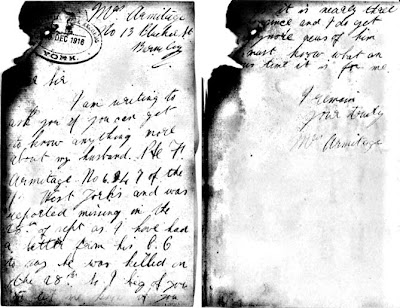 Mrs Armitage
No 13 Blucher St
DEC 1916
YORK.
Sir
I am writing to
ask you if you can get
to know anything more
about my husband. Pte F
Armitage. No of the
West Yorks and was
reported missing on the
28th of sept as I have had
a letter from his C.O
to say he was killed on
the 28th. So I beg of you
to let me of you
it is nearly three
since and I do get
no more news of him
must know what an
it is for me.
I remain
Yours truly
Mrs Armitage